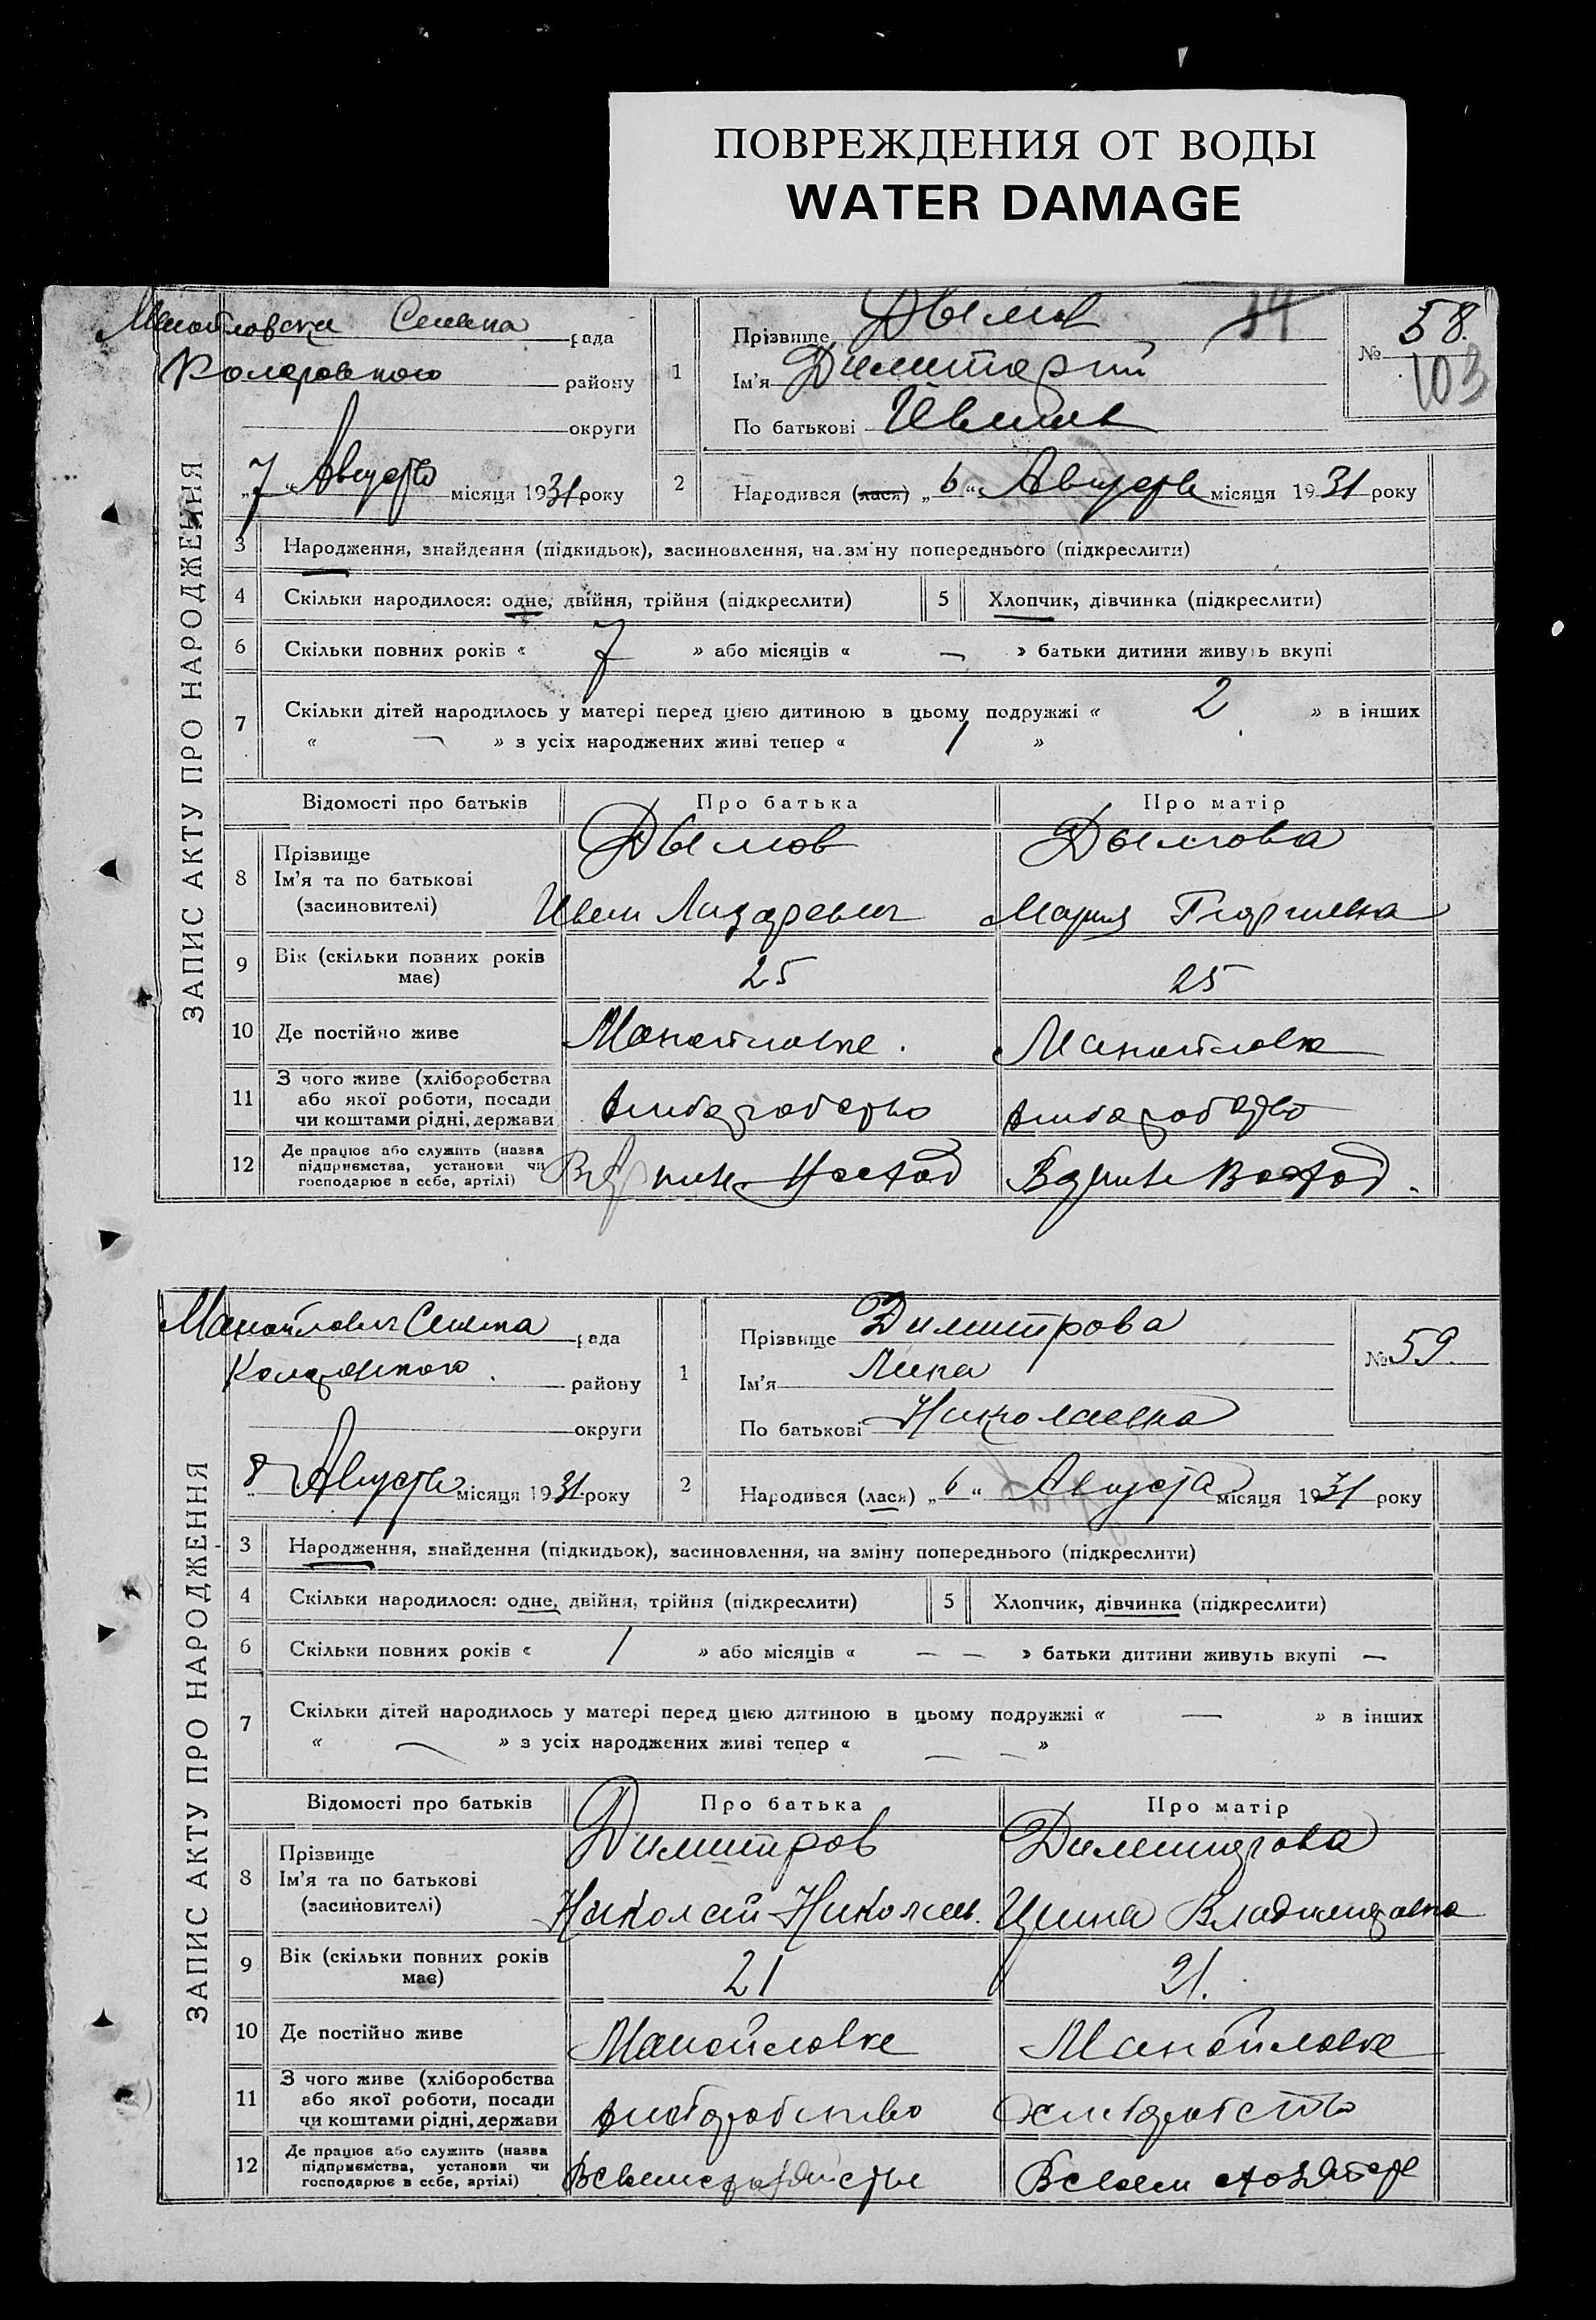 ПОВРЕЖДЕНИЯ ОТ ВОДЫ
WATER DAMAGE
ЗАПИС АКТУ ПРО НАРОДЖЕННЯ
рада
району
округи
„7“ Августа місяця 1931 року
1
Прізвище Дымов
Ім'я Димитарий
По батькові Иванов
34
№ 58.
103
2
Народився (лася) „6“ Августа місяця 1931 року
3 Народження, знайдення (підкидьок), засиновлення, на зм ну попереднього (підкреслити)
4 Скільки народилося: одне, двійня, трійня (підкреслити) 5 Хлопчик, дівчинка (підкреслити)
6 Скільки повних років « 7 » або місяців « — » батьки дитини живуть вкупі
7 Скільки дітей народилось у матері перед цією дитиною в цьому подружжі « 2 » в інших
« — » з усіх народжених живі тепер « 1 »
Відомості про батьків Про батька Про матір
8 Прізвище Ім'я та по батькові (засиновителі)
Дымов Дымова
Иван Лазаревич Мария Георгиевна
9 Вік (скільки повних років має) 25 25
10 Де постійно живе Манойловке. Манойловка
11 З чого живе (хліборобства або якої роботи, посади чи коштами рідні, держави хлиборобство хлиборобство
12 Де працює або служить (назва підприємства, установи чи господарює в себе, артілі) Восход Восход.
ЗАПИС АКТУ ПРО НАРОДЖЕННЯ
рада
району
округи
8 Августа місяця 1931 року
1
Прізвище Димитрова
Ім'я Лина
По батькові Николаевна
№ 59.
2
Народився (лася) „6“ Августа місяця 1931 року
3 Народження, знайдення (підкидьок), засиновлення, на зміну попереднього (підкреслити)
4 Скільки народилося: одне, двійня, трійня (підкреслити) 5 Хлопчик, дівчинка (підкреслити)
6 Скільки повних років « 1 » або місяців « — — » батьки дитини живуть вкупі —
7 Скільки дітей народилось у матері перед цією дитиною в цьому подружжі « — » в інших
« — » з усіх народжених живі тепер « — — »
Відомості про батьків Про батька Про матір
8 Прізвище Ім'я та по батькові (засиновителі)
Димитров Димитрова
Николай Николаев. Цина Владимировна
9 Вік (скільки повних років має) 21 21.
10 Де постійно живе Манойловке Манойловке
11 З чого живе (хліборобства або якої роботи, посади чи коштами рідні, держави хлиборобство хлиборобство
12 Де працює або служить (назва підприємства, установи чи господарює в себе, артілі)